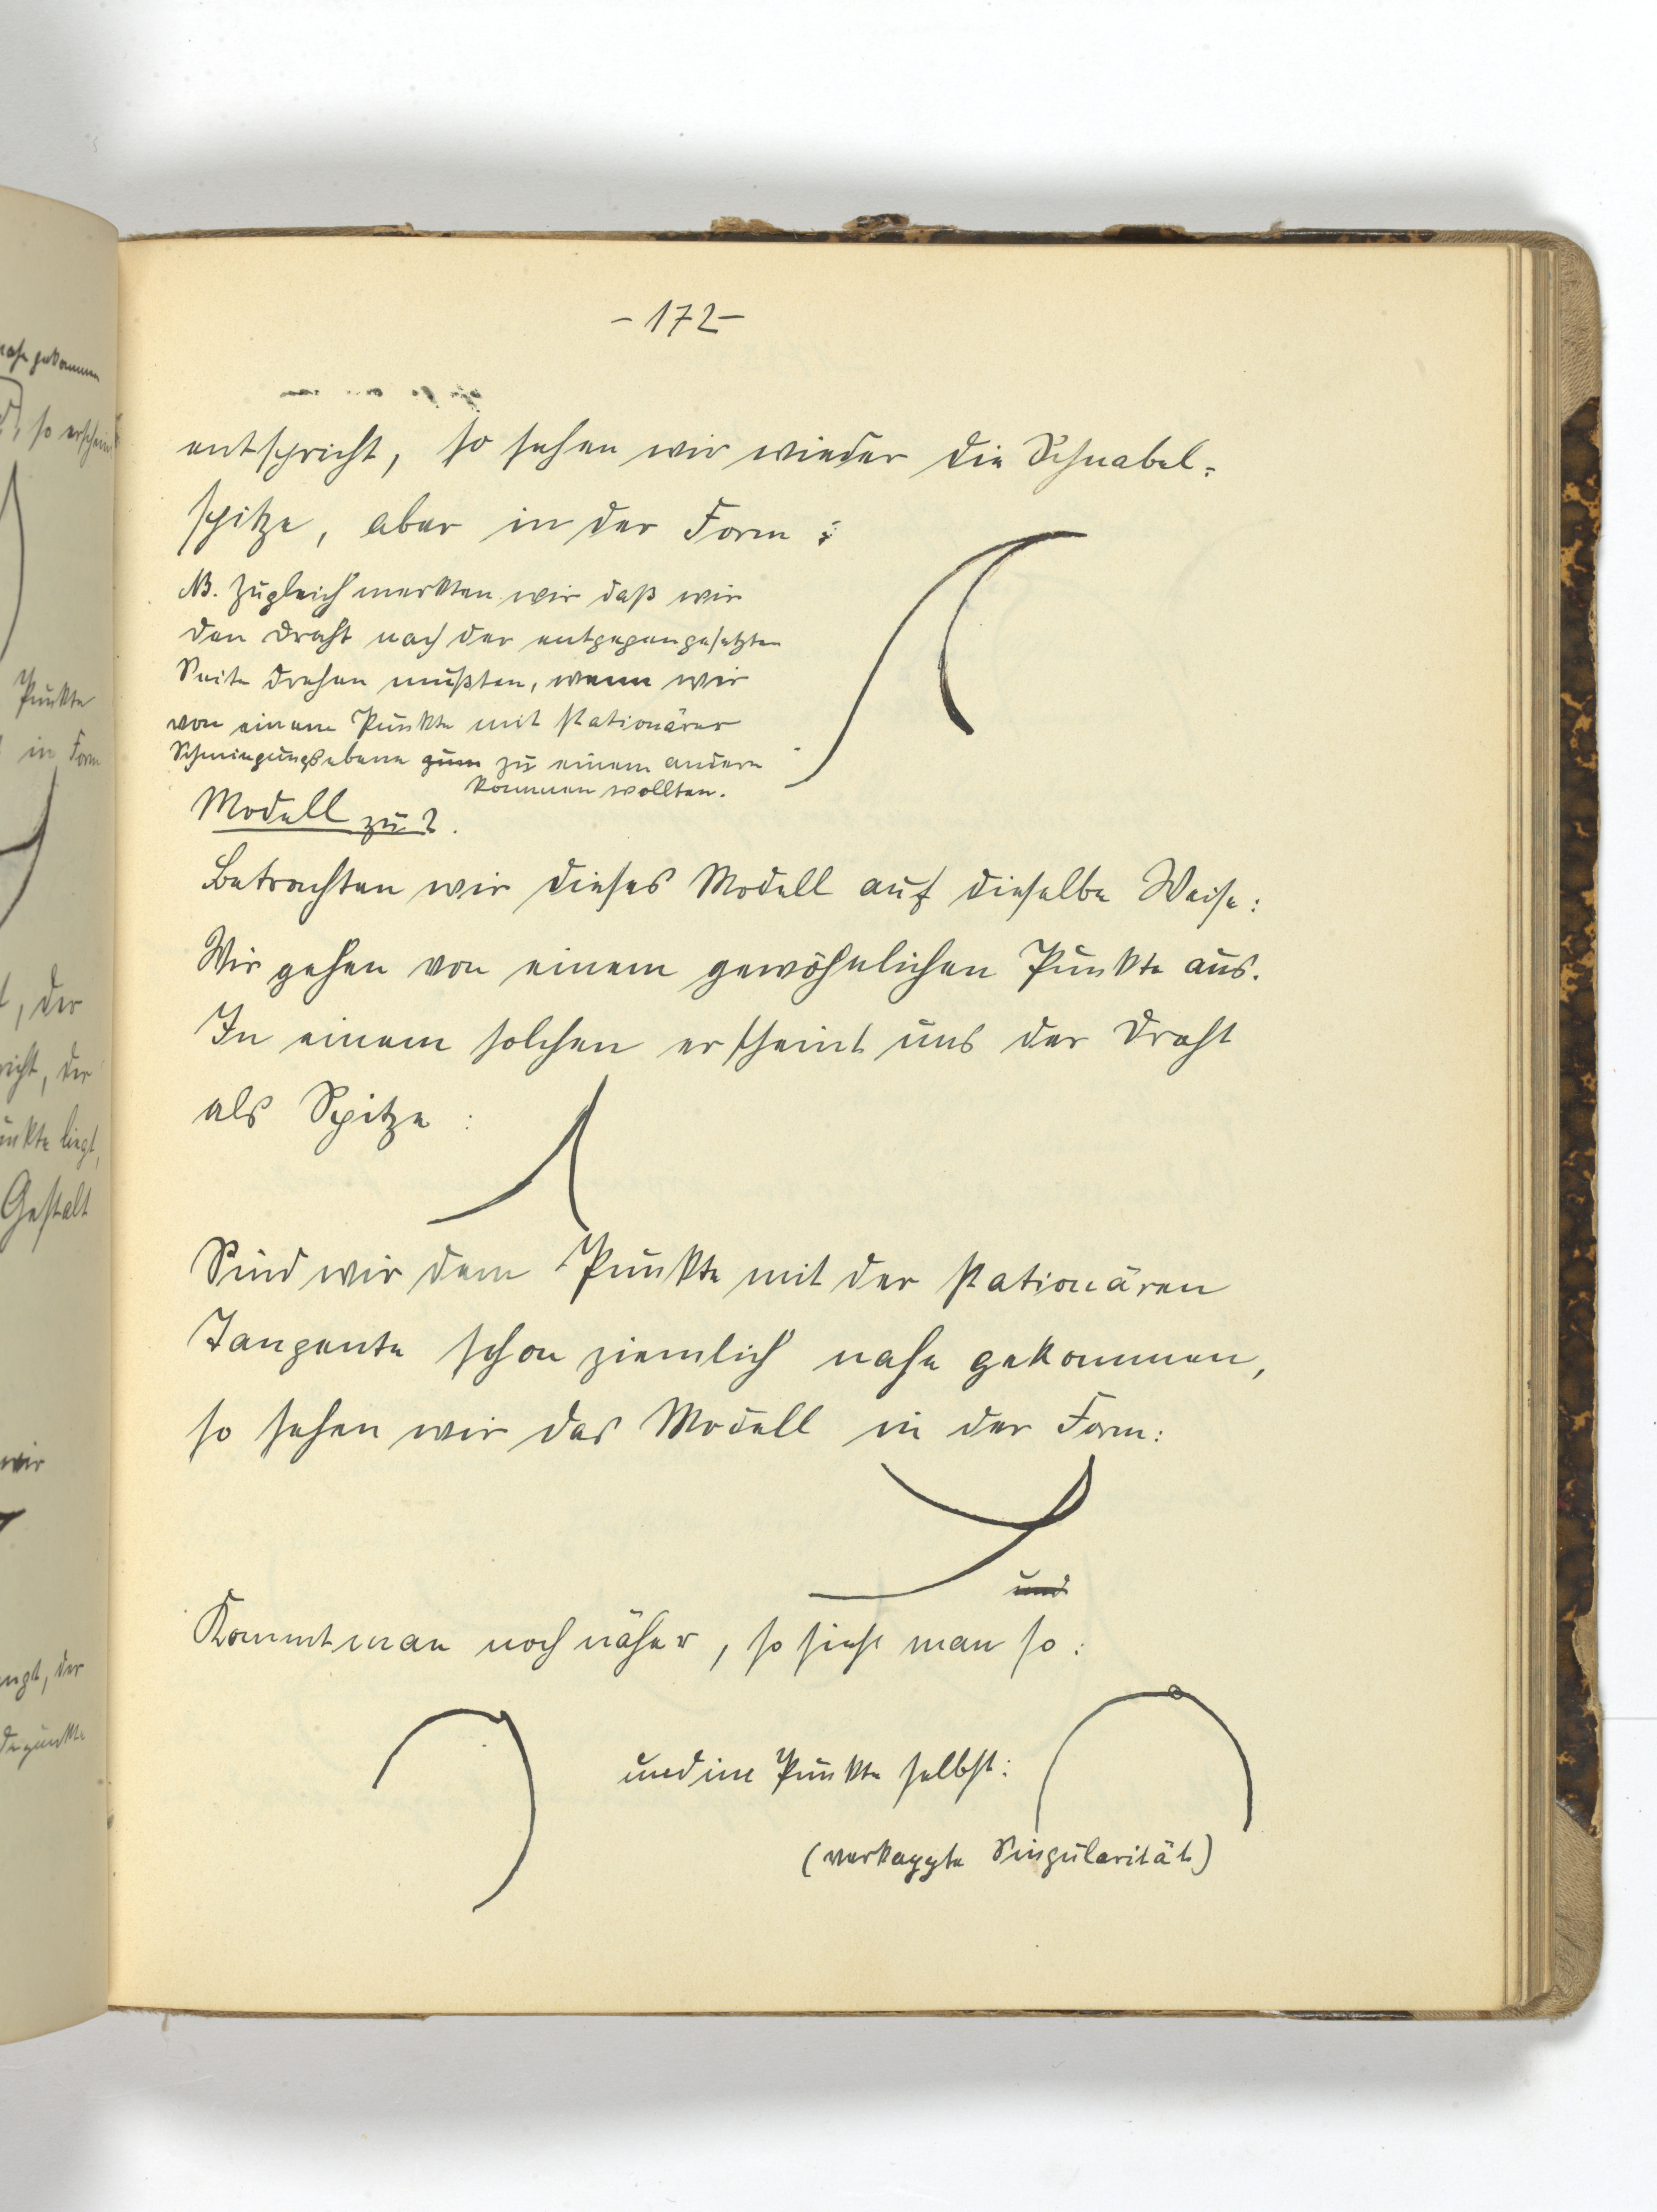 -172-
entspricht, so sehen wir wieder die Schnabel=
spitze, aber in der Form:
NB. Zugleich merkten wir daß wir
den Draht nach der entgegengesetzten
Seite drehen mußten, wenn wir
von einem Punkte mit stationärer
Schmiegungsebene zum zu einem andern
kommen wollten.
Modell zu 2.
Betrachten wir dieses Modell auf dieselbe Weise:
Wir gehen von einem gewöhnlichen Punkte aus.
In einem solchen erscheint uns der Draht
als Spitze:
Sind wir dem Punkte mit der stationären
Tangente schon ziemlich nahe gekommen,
so sehen wir das Modell in der Form:
und
Kommt man noch näher, so sieht man so:
und im Punkte selbst:
(verkappte Singularität)
nahe gekommen
so erschein
Punkte
in Form
, der
, der
liegt,
Gestalt
wir
, der